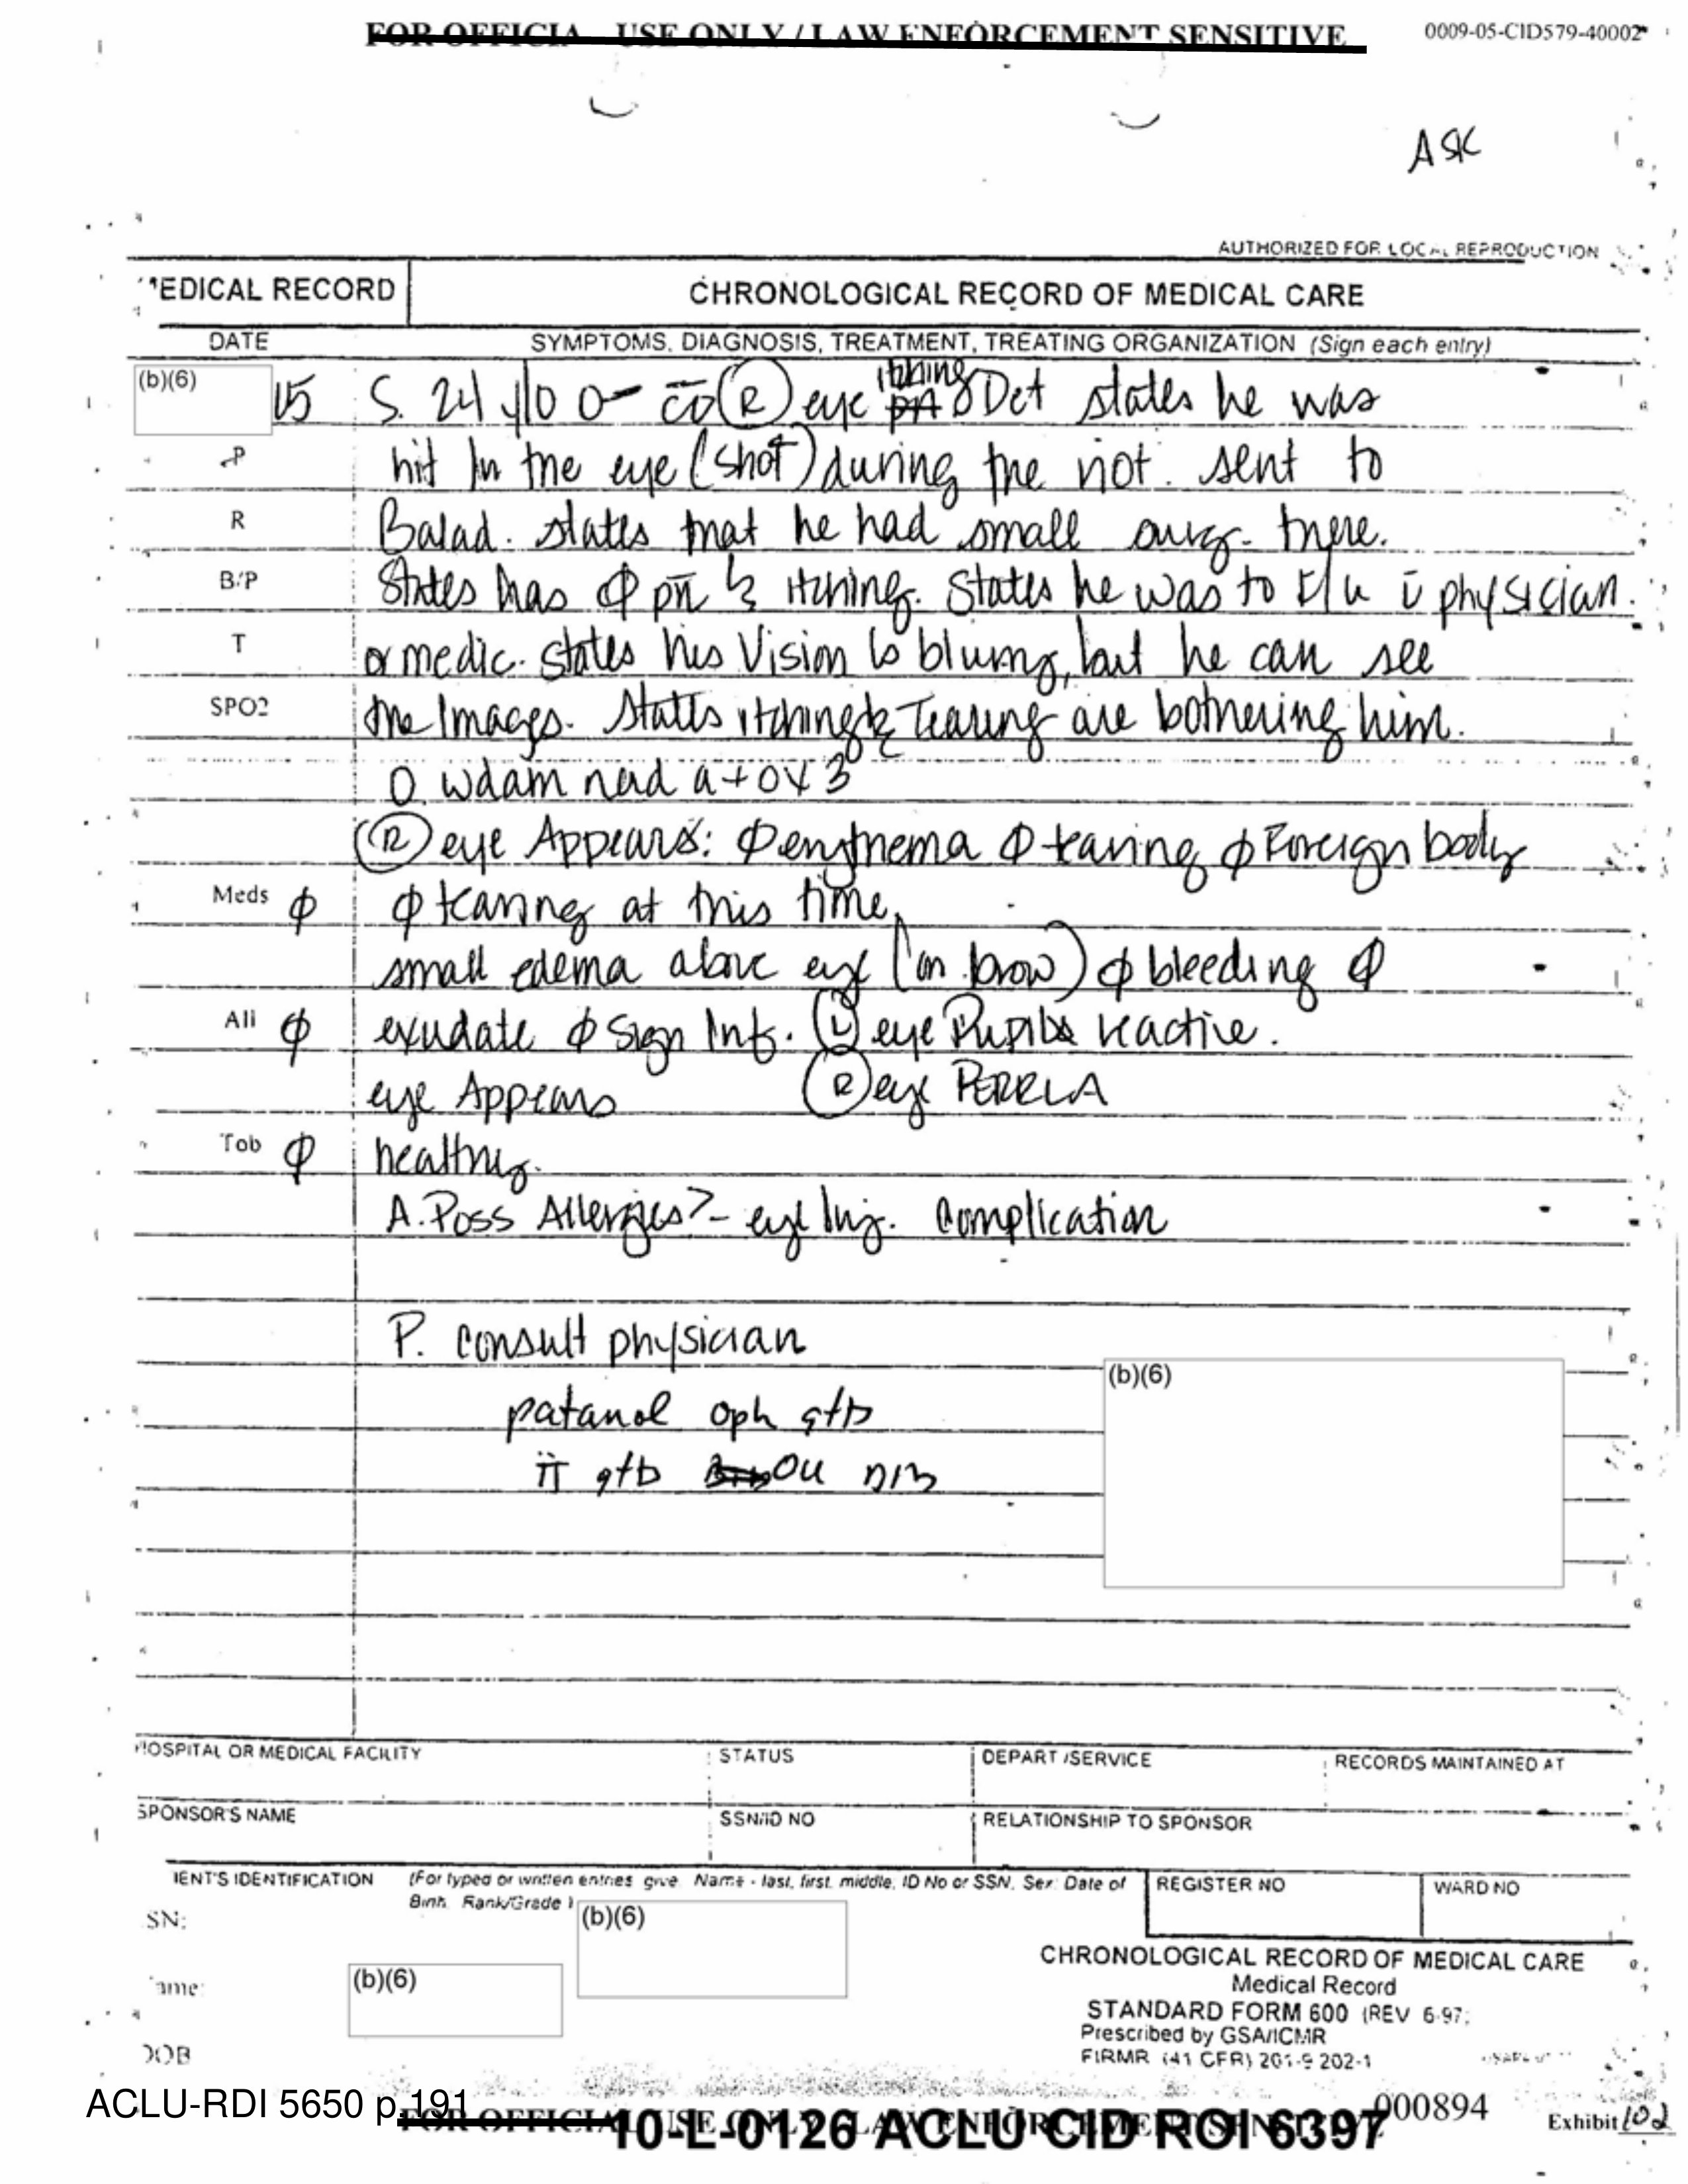 FOR OFFICIAL USE ONLY / LAW ENFORCEMENT SENSITIVE
0009-05-CID579-40002
ASK
AUTHORIZED FOR LOCAL REPRODUCTION
MEDICAL RECORD
CHRONOLOGICAL RECORD OF MEDICAL CARE
DATE
SYMPTOMS, DIAGNOSIS, TREATMENT, TREATING ORGANIZATION (Sign each entry)
(b)(6)
05 S. 24 y/o ♂ c̄ c/o (R) eye itching Det states he was
P hit in the eye (shot) during the riot. sent to
R Balad. states that he had small surg. there.
B/P States has φ pn itching. States he was to f/u c̄ physician.
T or medic. states his Vision is blurry, but he can see
SPO2 the Images. states itching & Tearing are bothering him.
O. wdam nad a+ox3
(R) eye Appears: φ erythema φ tearing φ Foreign body
Meds φ φ tearing at this time,
small edema above eye (on brow) φ bleeding φ
All φ exudate φ sign Inf. (L) eye Pupils reactive.
eye Appears (R) eye PERRLA
Tob φ healthy.
A. Poss Allergies? - eye Inj. complication
P. consult physician
(b)(6)
patanol oph gtts
ii gtts OU
HOSPITAL OR MEDICAL FACILITY
STATUS
DEPART /SERVICE
RECORDS MAINTAINED AT
SPONSOR'S NAME
SSN/ID NO
RELATIONSHIP TO SPONSOR
IENT'S IDENTIFICATION
(For typed or written entries give: Name - last, first, middle, ID No or SSN, Sex; Date of
Birth, Rank/Grade)
REGISTER NO
WARD NO
SN:
(b)(6)
ame:
(b)(6)
DOB
CHRONOLOGICAL RECORD OF MEDICAL CARE
Medical Record
STANDARD FORM 600 (REV 6-97)
Prescribed by GSA/ICMR
FIRMR (41 CFR) 201-9 202-1
ACLU-RDI 5650 p.191
FOR OFFICIAL USE ONLY / LAW ENFORCEMENT SENSITIVE
10-L-0126 ACLU CID ROI 6397
000894
Exhibit 102